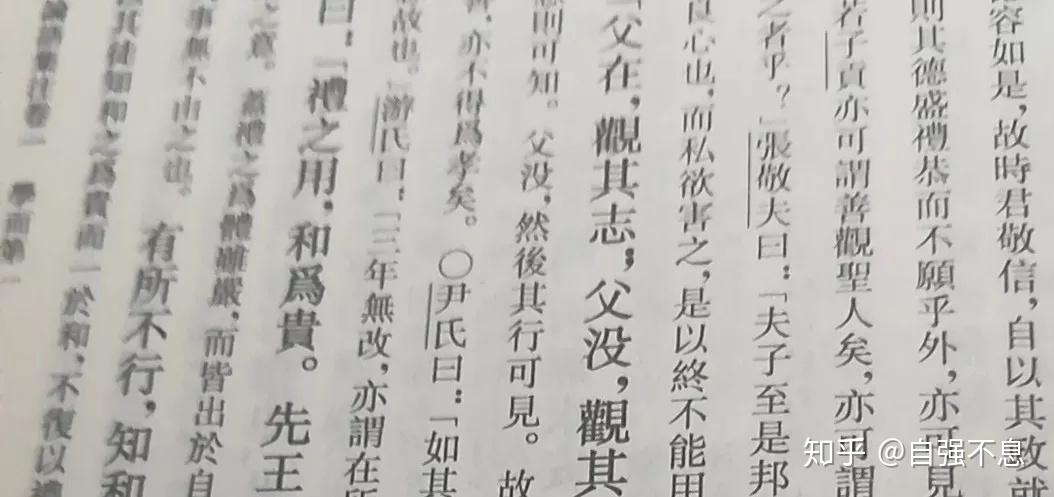 容如是，故時君敬信，自以其政就
則其德盛禮恭而不願乎外，亦可見
若子貢亦可謂善觀聖人矣，亦可謂
之者乎？」張敬夫曰：「夫子至是邦
良心也，而私欲害之，是以終不能用
「父在，觀其志；父没，觀其
則可知。父没，然後其行可見。故
亦不得爲孝矣。○尹氏曰：「如其
故也。」游氏曰：「三年無改，亦謂在所
曰：「禮之用，和爲貴。先王
之意。蓋禮之爲體雖嚴，而皆出於自
事無不由之也。有所不行，知和
其徒知和之爲貴而一於和，不復以禮
論語集注卷一 學而第一
知乎 @自强不息